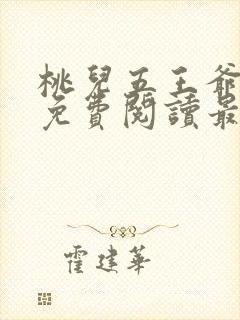 桃兒五王爺
免費閱讀最
霍建華